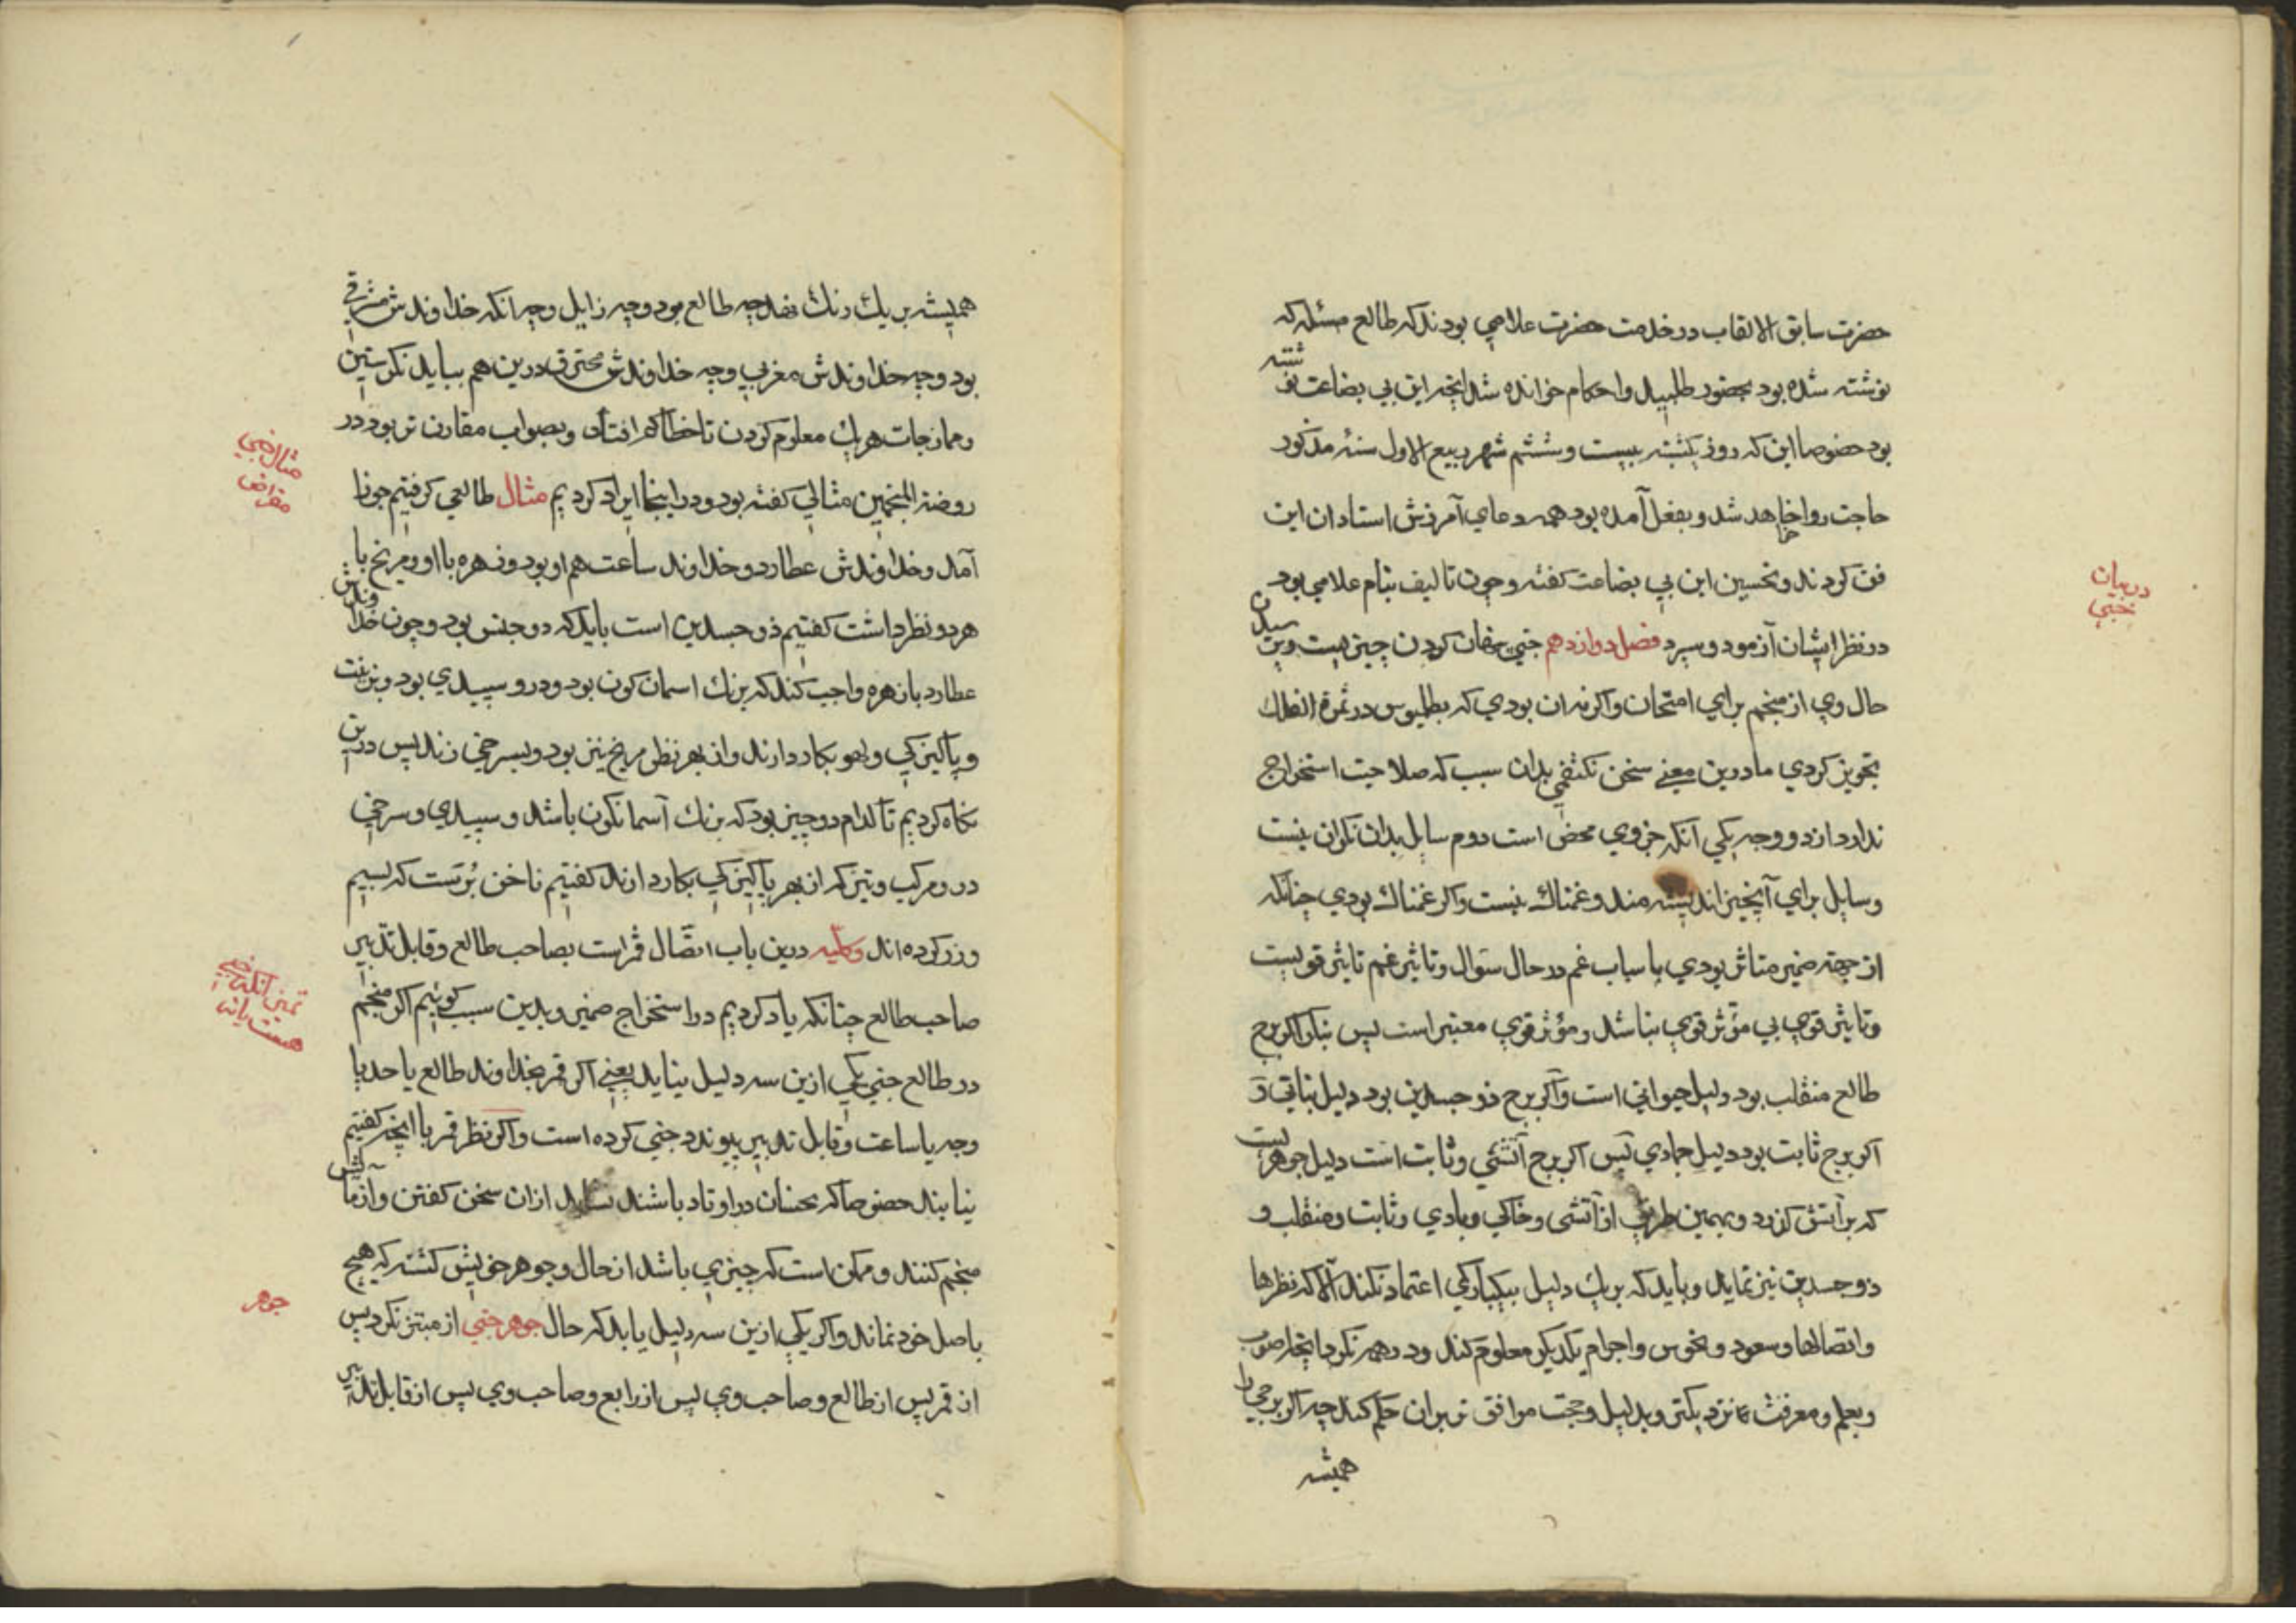 حضرت سابق الالقاب در خدمت حضرت علامی بودند که طالع مسئله که
نوشته شده بود بحضور طلبید و احکام خوانده شد انچه این بی بضاعت نوشته
بود خصوصا این که روز یکشنبه بیست و ششم شهر ربیع الاول سنه مذکور
حاجت روا خواهد شد و بفعل آمده بود همه دعای آمرزش استادان این
فن کردند و تحسین این بی بضاعت گفته و چون تالیف بنام علامی بود
در نظر ایشان آزمود و سپرد فصل دوازدهم خبی پنهان کردن چیزیست و پرسیدن
حال وی از منجم برای امتحان و اکر نه ان بودی که بطلیوس در ثمرة الفلك
تجویز کردی ما درین معنی سخن نکفتمی بدان سبب که صلاحیت استخراج
ندارد از دو وجه یکی آنکه جزوی محض است دوم سایل بدان نکران نیست
و سایل برای آنچیز اندیشه مند و غمناك نیست و اکر غمناك بودی چنانکه
از جهة ضمیر متاثر بودی باسباب غم در حال سؤال و تاثیر غم تاثیر قویست
و تاثیر قوی بی مؤثر قوی نباشد و مؤثر قوی معتبر است پس بنکر اکر برج
طالع منقلب بود دلیل حیوانی است و اکر برج ذوجسدین بود دلیل نباتی و
اکر برج ثابت بود دلیل جمادی پس اکر برج آتشی و ثابت است دلیل جوهریست
که بر آتش کذرد و بهمین طریق از آتشی و خاکی و بادی و ثابت و منقلب و
ذوجسدین نیز نماید و باید که بر یك دلیل بیکبارکی اعتماد نکند الا که نظرها
و اتصالها و سعود و نحوس و اجرام یکدیکر معلوم کند و در همه نکرد انچه بصواب
و بعلم و معرفت نزدیکتر و بدلیل و حجت موافق تر بران حکم کند چه اکر برجی را
همیشه
در بیان
خبی
همیشه بر یك رنك نهد چه طالع بود و چه زایل و چه انکه خداوندش مشرقی
بود و چه خداوندش مغربی و چه خداوندش محترق درین هم بباید نکرستین
و ممازجات هر یك معلوم کردن تا خطا کم افتاد و بصواب مقارن تر بود در
روضة المنجمین مثالی کفته بود و در اینجا ایراد کردیم مثال طالعی کرفتیم جوزا
آمد و خداوندش عطارد و خداوند ساعت هم او بود و زهره با او و مریخ با
هر دو نظر داشت کفتیم ذوجسدین است باید که دو جنس بود و چون خداوندش
عطارد با زهره واجب کند که برنك اسمان کون بود و در و سپیدی بود و بزینت
و پاکیزکی و لهو بکار دارند و از بهر نظر مریخ تیز بود و بسرخی زند پس درین
نکاه کردیم تا کدام دو چیز بود که برنك آسمانکون باشد و سپیدی و سرخی
در و مرکب و تیز که از بهر پاکیزکی بکار دارند کفتیم ناخن برست که بسیم
و زر کرده اند وکلیه درین باب اتصال قمر است بصاحب طالع و قابل تدبیر
صاحب طالع چنانکه یاد کردیم در استخراج ضمیر و بدین سبب کوئیم اکر منجم
در طالع خبی یکی ازین سه دلیل نیابد یعنی اکر قمر بخداوند طالع یا حد یا
وجه یا ساعت و قابل تدبیر پیوندد خبی کرده است و اکر نظر قمر با انچه کفتیم
نیابند خصوصا که نحسان در اوتاد باشند نشاید ازان سخن کفتن و آزمایش
منجم کنند و ممکن است که چیزی باشد از حال و جوهر خویش کشته که هیچ
باصل خود نماند و اکر یکی ازین سه دلیل یابد که حال جوهر خبی از مبتز نکرد پس
از قمر پس از طالع و صاحب وی پس از رابع و صاحب وی پس از قابل تدبیر
مثال خبی
مقراض
تمیز انکه خبی
هست یا نه
جوهر